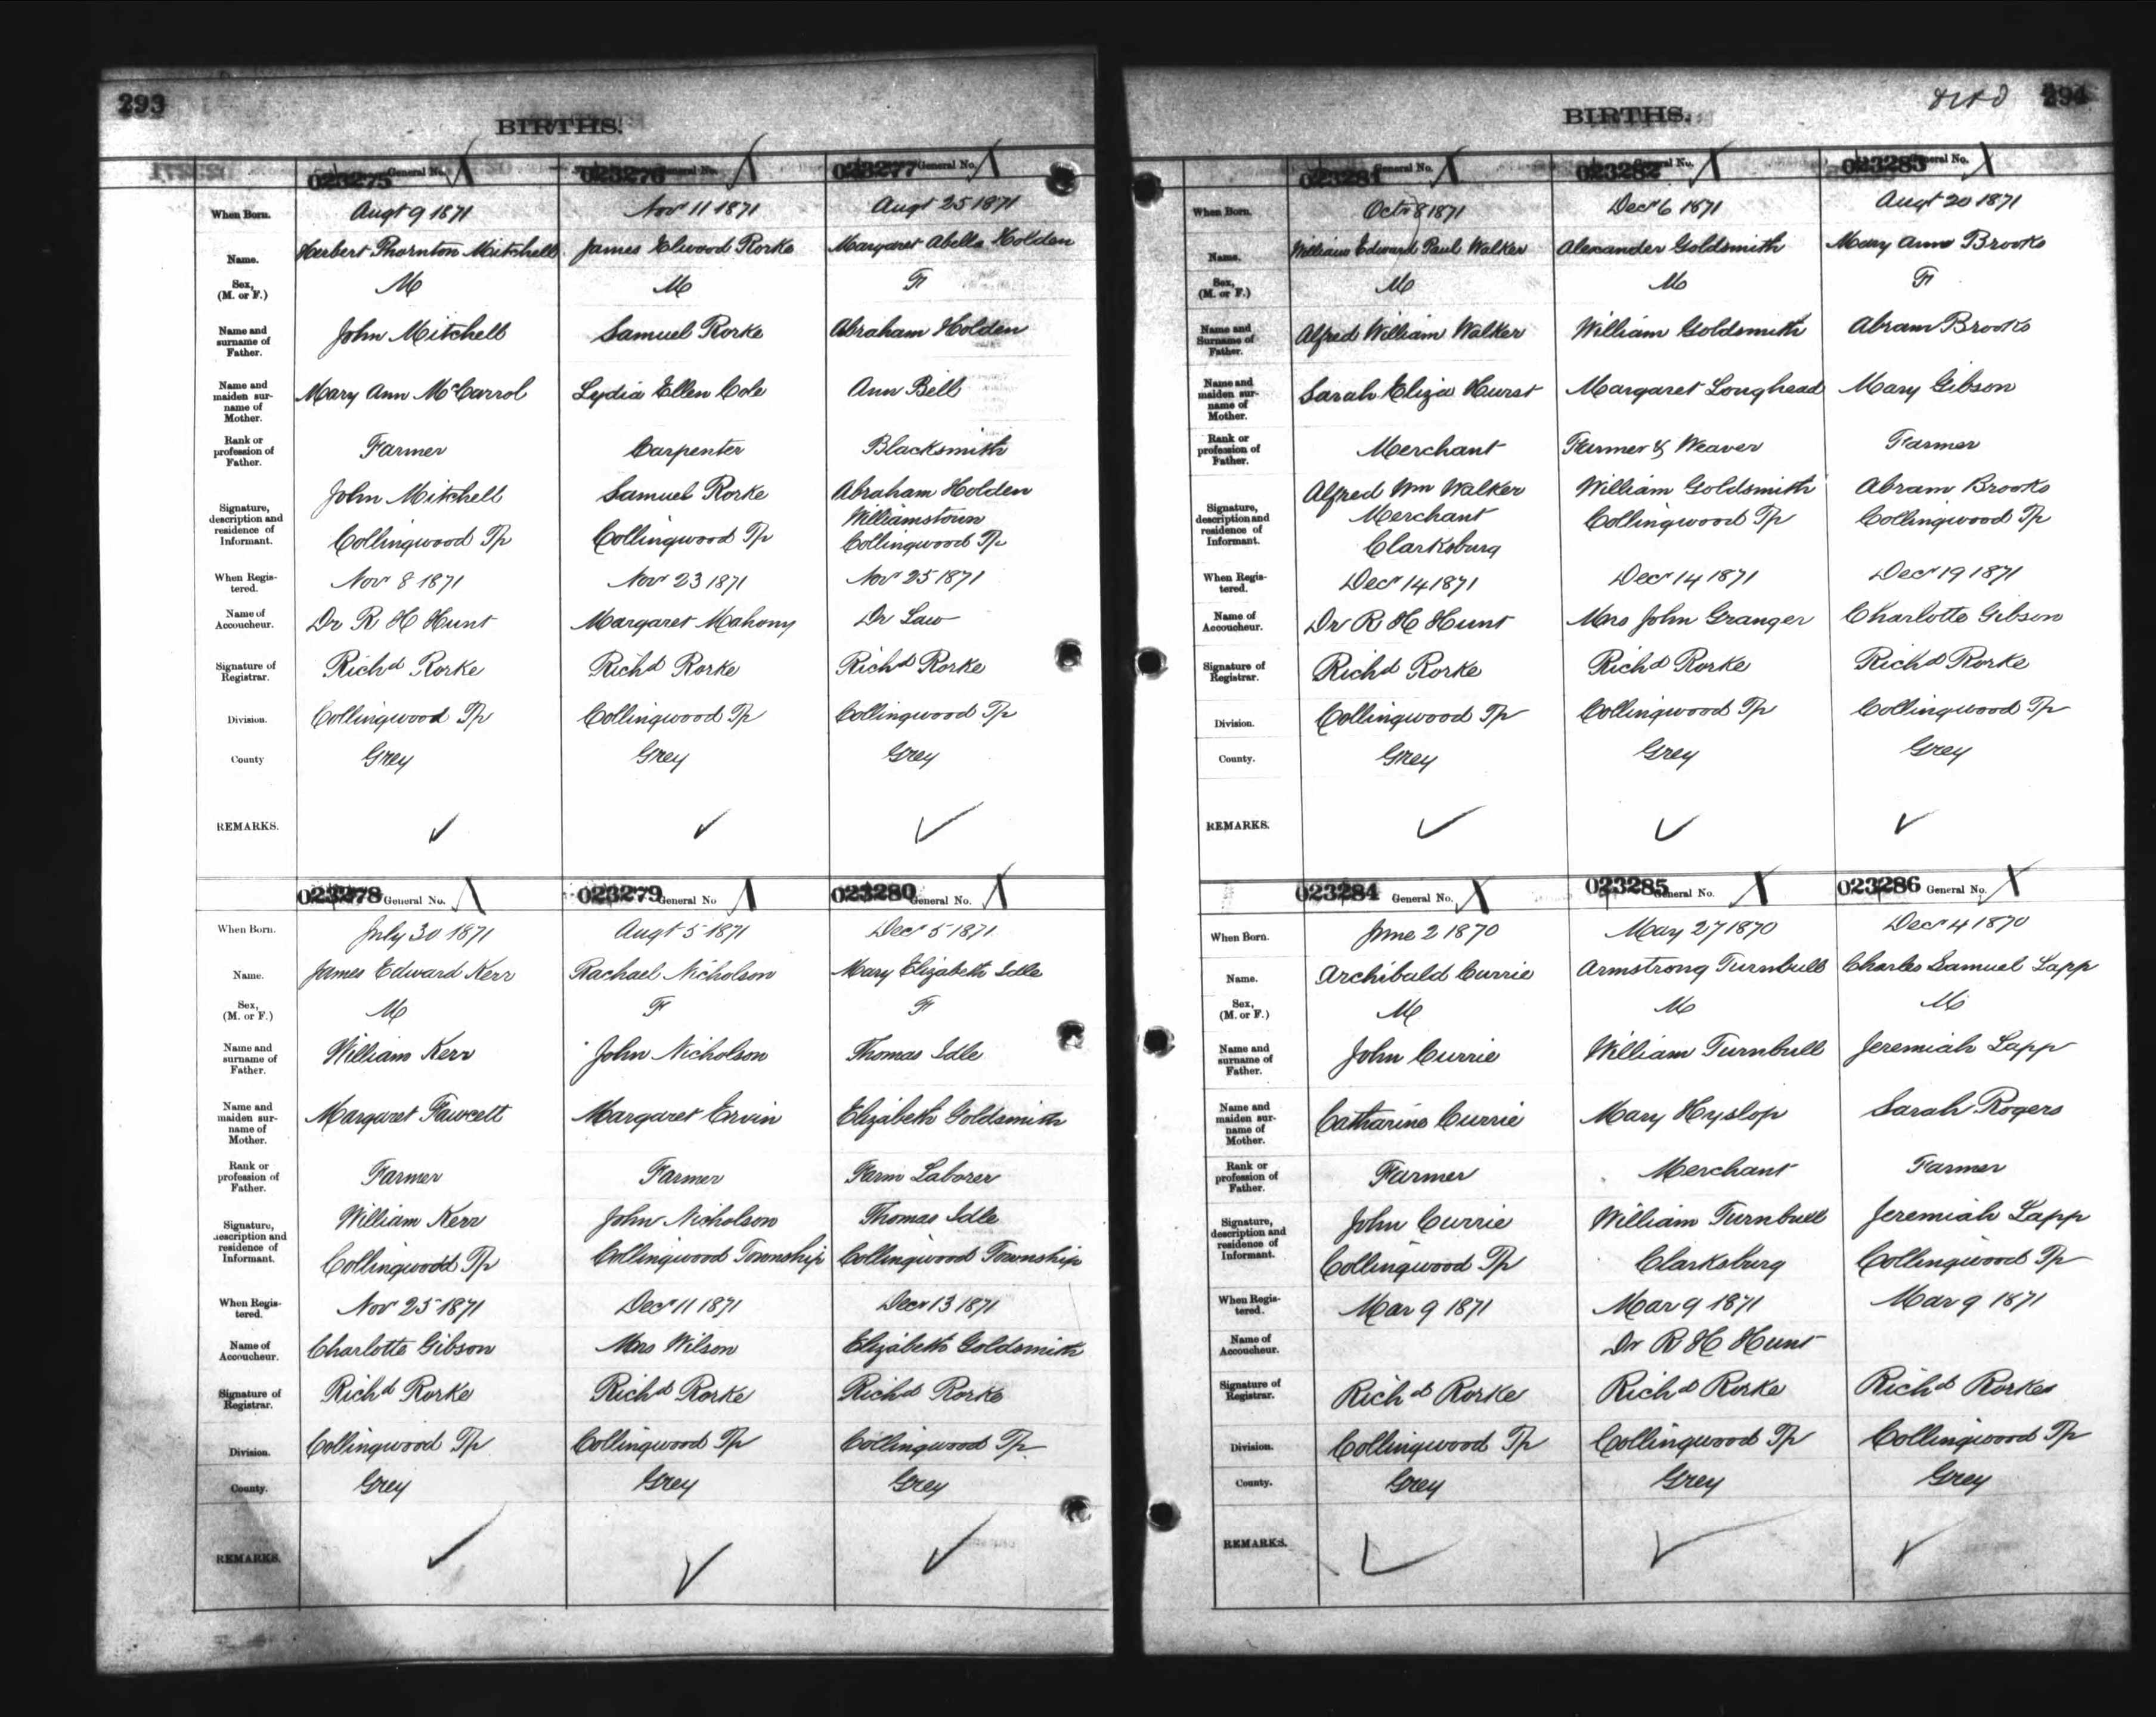 293
BIRTHS.
023275 General No.
023276 General No.
023277 General No.
When Born.
Augt 9 1871
Novr 11 1871
Augt 25 1871
Name.
Herbert Thornton Mitchell
James Elwood Rorke
Margaret Abella Holden
Sex, (M. or F.)
M
M
F
Name and surname of Father.
John Mitchell
Samuel Rorke
Abraham Holden
Name and maiden surname of Mother.
Mary Ann McCarrol
Lydia Ellen Cole
Ann Bell
Rank or profession of Father.
Farmer
Carpenter
Blacksmith
Signature, description and residence of Informant.
John Mitchell
Collingwood Tp
Samuel Rorke
Collingwood Tp
Abraham Holden
Williamstown
Collingwood Tp
When Registered.
Novr 8 1871
Novr 23 1871
Novr 25 1871
Name of Accoucheur.
Dr R H Hunt
Margaret Mahony
Dr Law
Signature of Registrar.
Richd Rorke
Richd Rorke
Richd Rorke
Division.
Collingwood Tp
Collingwood Tp
Collingwood Tp
County
Grey
Grey
Grey
REMARKS.
023278 General No.
023279 General No
023280 General No.
When Born.
July 30 1871
Augt 5 1871
Decr 5 1871
Name.
James Edward Kerr
Rachael Nicholson
Mary Elizabeth Idle
Sex, (M. or F.)
M
F
F
Name and surname of Father.
William Kerr
John Nicholson
Thomas Idle
Name and maiden surname of Mother.
Margaret Fawcett
Margaret Ervin
Elizabeth Goldsmith
Rank or profession of Father.
Farmer
Farmer
Farm Laborer
Signature, description and residence of Informant.
William Kerr
Collingwood Tp
John Nicholson
Collingwood Township
Thomas Idle
Collingwood Township
When Registered.
Novr 25 1871
Decr 11 1871
Decr 13 1871
Name of Accoucheur.
Charlotte Gibson
Mrs Wilson
Elizabeth Goldsmith
Signature of Registrar.
Richd Rorke
Richd Rorke
Richd Rorke
Division.
Collingwood Tp
Collingwood Tp
Collingwood Tp
County.
Grey
Grey
Grey
REMARKS.
294
BIRTHS.
023281 General No.
023282 General No.
023283 General No.
When Born.
Octr 8 1871
Decr 6 1871
Augt 20 1871
Name.
William Edward Paul Walker
Alexander Goldsmith
Mary Ann Brooks
Sex, (M. or F.)
M
M
F
Name and Surname of Father.
Alfred William Walker
William Goldsmith
Abram Brooks
Name and maiden surname of Mother.
Sarah Eliza Hurst
Margaret Loughead
Mary Gibson
Rank or profession of Father.
Merchant
Farmer & Weaver
Farmer
Signature, description and residence of Informant.
Alfred Wm Walker
Merchant
Clarksburg
William Goldsmith
Collingwood Tp
Abram Brooks
Collingwood Tp
When Registered.
Decr 14 1871
Decr 14 1871
Decr 19 1871
Name of Accoucheur.
Dr R H Hunt
Mrs John Granger
Charlotte Gibson
Signature of Registrar.
Richd Rorke
Richd Rorke
Richd Rorke
Division.
Collingwood Tp
Collingwood Tp
Collingwood Tp
County.
Grey
Grey
Grey
REMARKS.
023284 General No.
023285 General No.
023286 General No.
When Born.
June 2 1870
May 27 1870
Decr 4 1870
Name.
Archibald Currie
Armstrong Turnbull
Charles Samuel Lapp
Sex, (M. or F.)
M
M
M
Name and surname of Father.
John Currie
William Turnbull
Jeremiah Lapp
Name and maiden surname of Mother.
Catharine Currie
Mary Hyslop
Sarah Rogers
Rank or profession of Father.
Farmer
Merchant
Farmer
Signature, description and residence of Informant.
John Currie
Collingwood Tp
William Turnbull
Clarksburg
Jeremiah Lapp
Collingwood Tp
When Registered.
Mar 9 1871
Mar 9 1871
Mar 9 1871
Name of Accoucheur.
Dr R H Hunt
Signature of Registrar.
Richd Rorke
Richd Rorke
Richd Rorke
Division.
Collingwood Tp
Collingwood Tp
Collingwood Tp
County.
Grey
Grey
Grey
REMARKS.